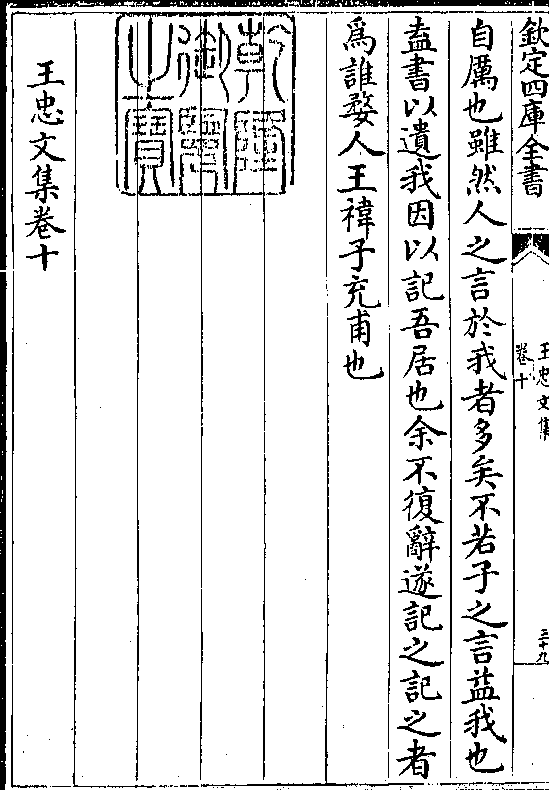 欽定四庫全書
王忠文集
卷十
三十九
自厲也雖然人之言於我者多矣不若子之言益我也
盍書以遺我因以記吾居也余不復辭遂記之記之者
爲誰婺人王褘子充甫也
乾隆御覽之寶
王忠文集卷十